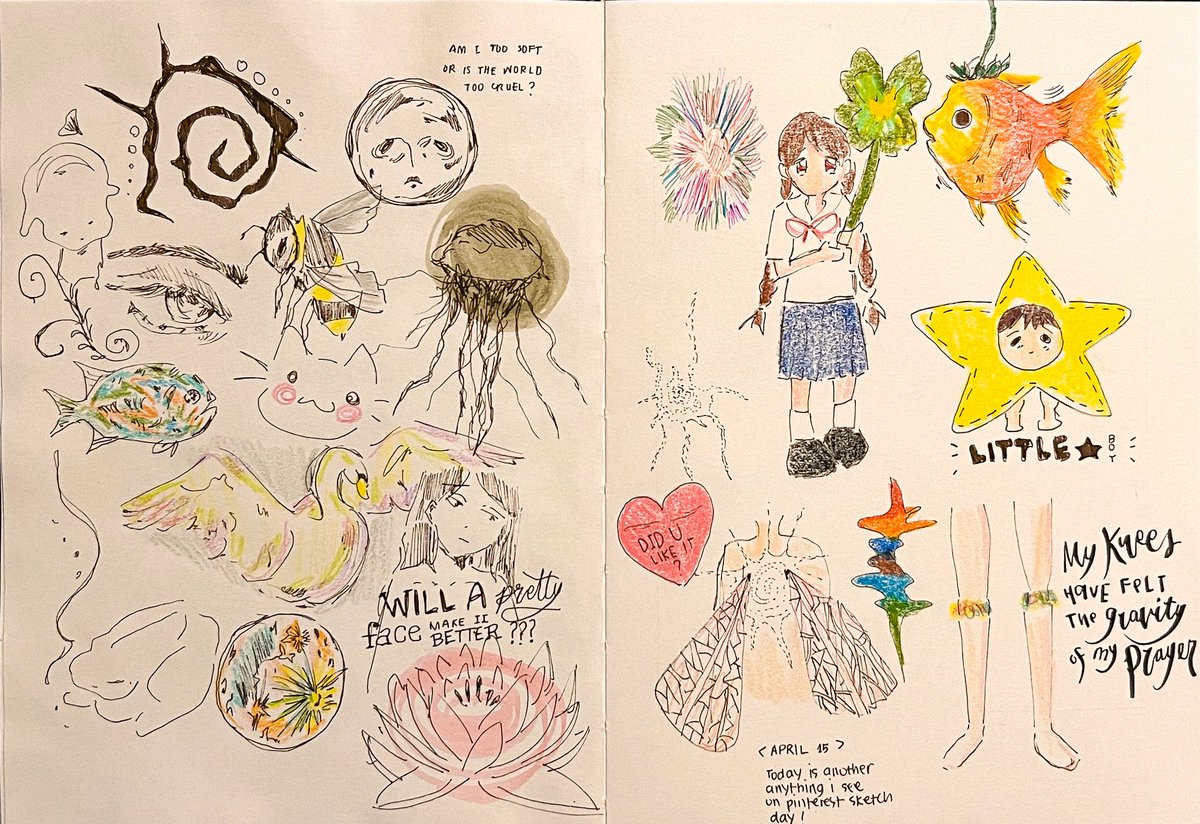 AM I TOO SOFT
OR IS THE WORLD
TOO CRUEL?
WILL A pretty
face MAKE II
BETTER ???
LITTLE ★ BOY
DID U
LIKE IT
?
My Knees
HAVE FELT
THE gravity
of my prayer
< APRIL 15 >
Today is another
anything i see
un pinterest sketch
day!